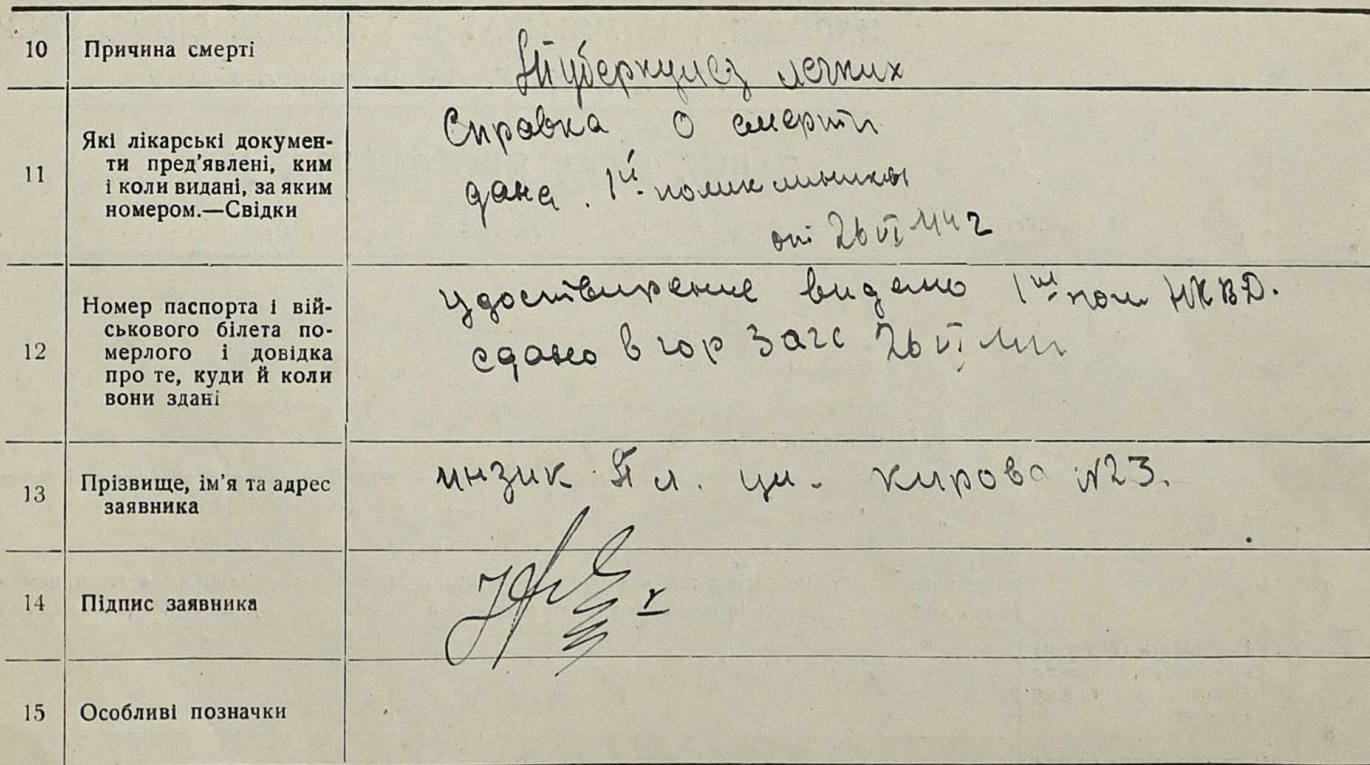 10 Причина смерти Туберкулез легких
11 Які лікарські докумен-
ти пред'явлені, ким
і коли видані, за яким
номером.—Свідки
Справка о смерти
дана 1й поликлиникы
от 26 VI 44 г
12 Номер паспорта і вій-
ськового білета по-
мерлого і довідка
про те, куди й коли
вони здані
удоствирение видано 1м НКВД.
сдано в гор Загс 26 VI 44
13 Прізвище, ім'я та адрес
заявника
инзик л. ул. Кирова №23.
14 Підпис заявника
15 Особливі позначки